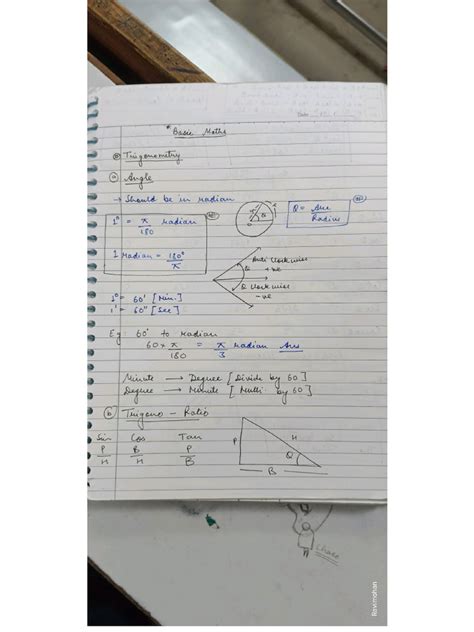 Date
* Basic Maths
Trigonometry
(a) Angle
→ Should be in radian
1° = π/180 radian
Q = Arc/Radius
1 Radian = 180°/π
Anti Clockwise
+ve
Q Clockwise
-ve
1° = 60' [Min.]
1' = 60" [Sec]
Eg: 60° to radian
60 × π/180 = π/3 radian Ans
Minute → Degree [Divide by 60]
Degree → Minute [Multi by 60]
(b) Trigono - Ratio
Sin Cos Tan
P/H B/H P/B
P H Q
B
Ravimohan